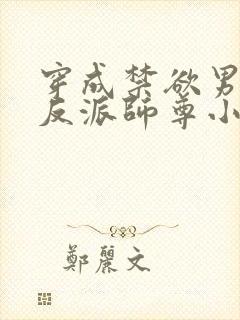 穿成禁欲男
反派師尊小
鄭麗文